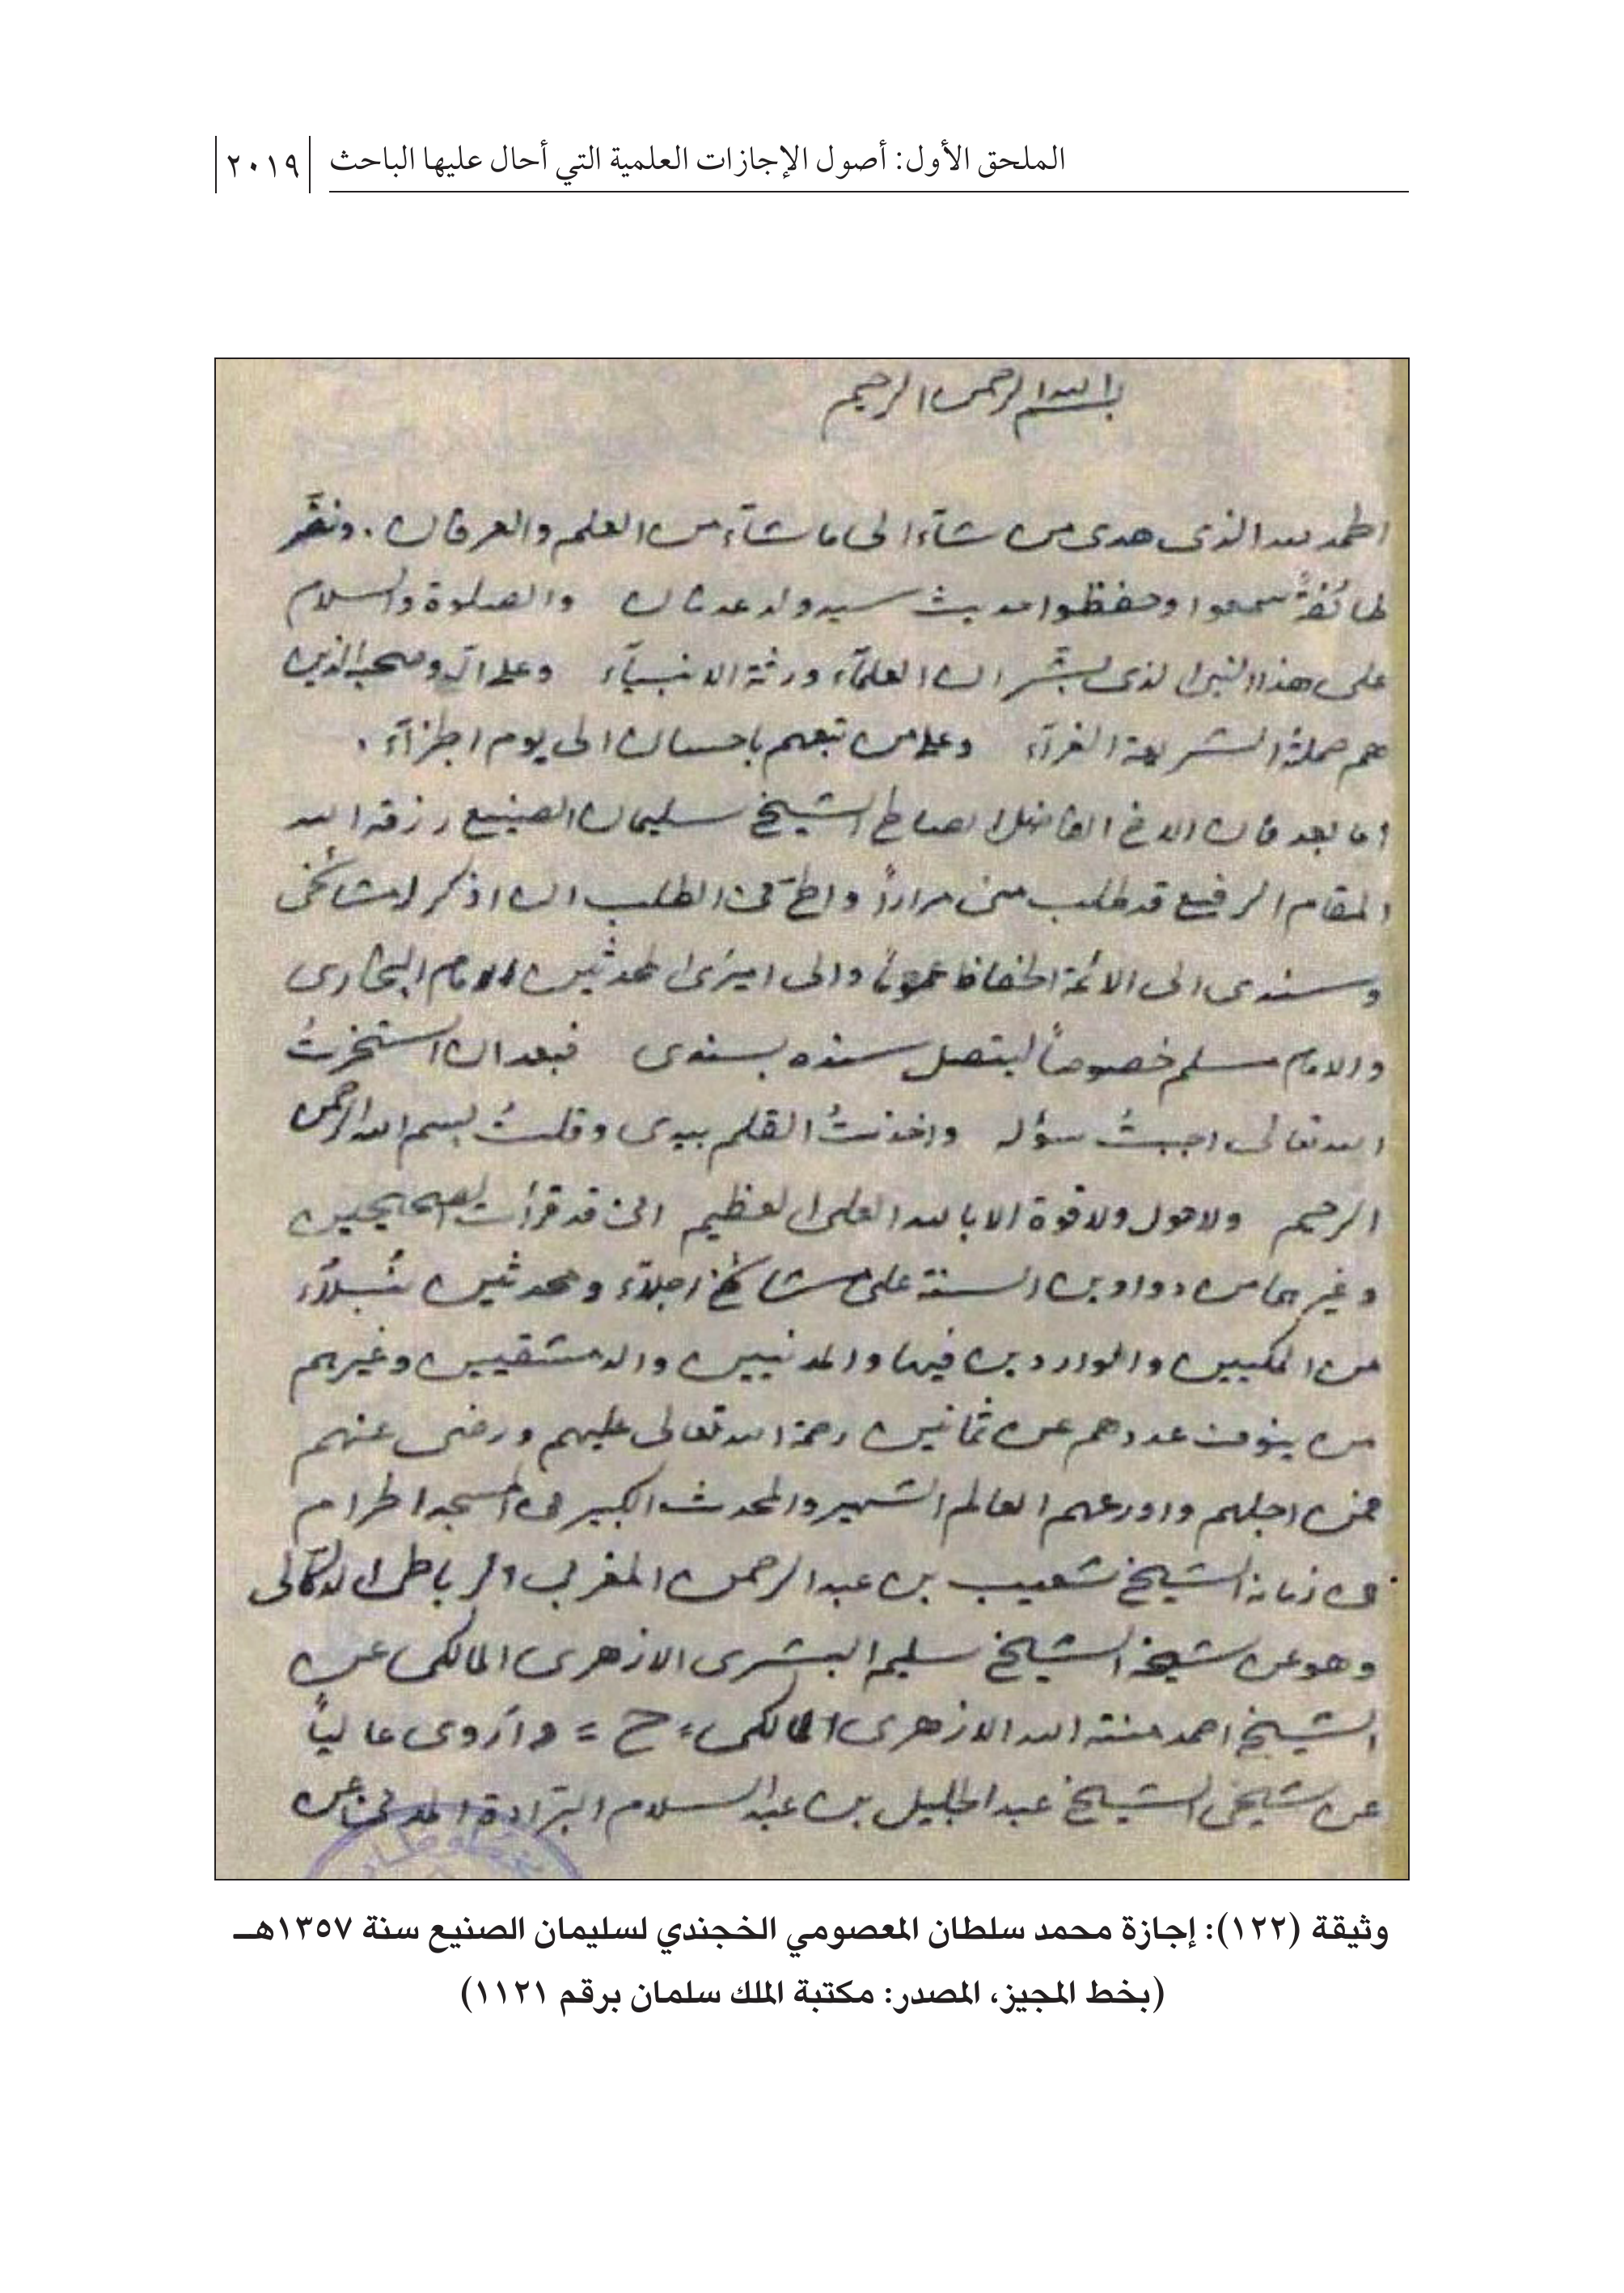 الملحق الأول: أصول الإجازات العلمية التي أحال عليها الباحث ٢٠١٩
بسم الله الرحمن الرحيم
الحمد لله الذى هدى من شآء الى ما شآء من العلم والعرفان . ونضّر
طائفةً سمعوا وحفظوا حديث سيد ولد عدنان والصلوة والسلام
على هذا النبى الذى بشّر ان العلمآء ورثة الانبيآء وعلى آله وصحبه الذين
هم حملة الشريعة الغرآء وعلى من تبعهم باحسان الى يوم الجزآء .
اما بعد فان الاخ الفاضل الصالح الشيخ سليمان الصنيع رزقه الله
المقام الرفيع قد طلب منى مراراً والحّ فى الطلب ان اذكر له مشائخى
وسندى الى الائمة الحفاظ عموماً والى اميرى المحدثين الامام البخارى
والامام مسلم خصوصاً ليتصل سنده بسندى فبعد ان استخرتُ
الله تعالى اجبتُ سؤله واخذتُ القلم بيدى وقلتُ بسم الله الرحمن
الرحيم ولا حول ولا قوة الا بالله العلى العظيم انى قد قرأت الصحيحين
وغيرهما من دواوين السنة على مشائخ اجلآء ومحدثين نُبلآء
من المكيين والواردين فيها والمدنيين والدمشقيين وغيرهم
من ينوف عددهم عن ثمانين رحمة الله تعالى عليهم ورضى عنهم
فمن اجلهم واورعهم العالم الشهير والمحدث الكبير فى المسجد الحرام
فى زمانه الشيخ شعيب بن عبد الرحمن المغربى الرباطى الدكالى
وهو عن شيخه الشيخ سليم البشرى الازهرى المالكى عن
الشيخ احمد منة الله الازهرى المالكى = ح = وأروى عالياً
عن شيخى الشيخ عبد الجليل بن عبد السلام البرّادة المدنى عن
وثيقة (١٢٢): إجازة محمد سلطان المعصومي الخجندي لسليمان الصنيع سنة ١٣٥٧هـ
(بخط المجيز، المصدر: مكتبة الملك سلمان برقم ١١٢١)